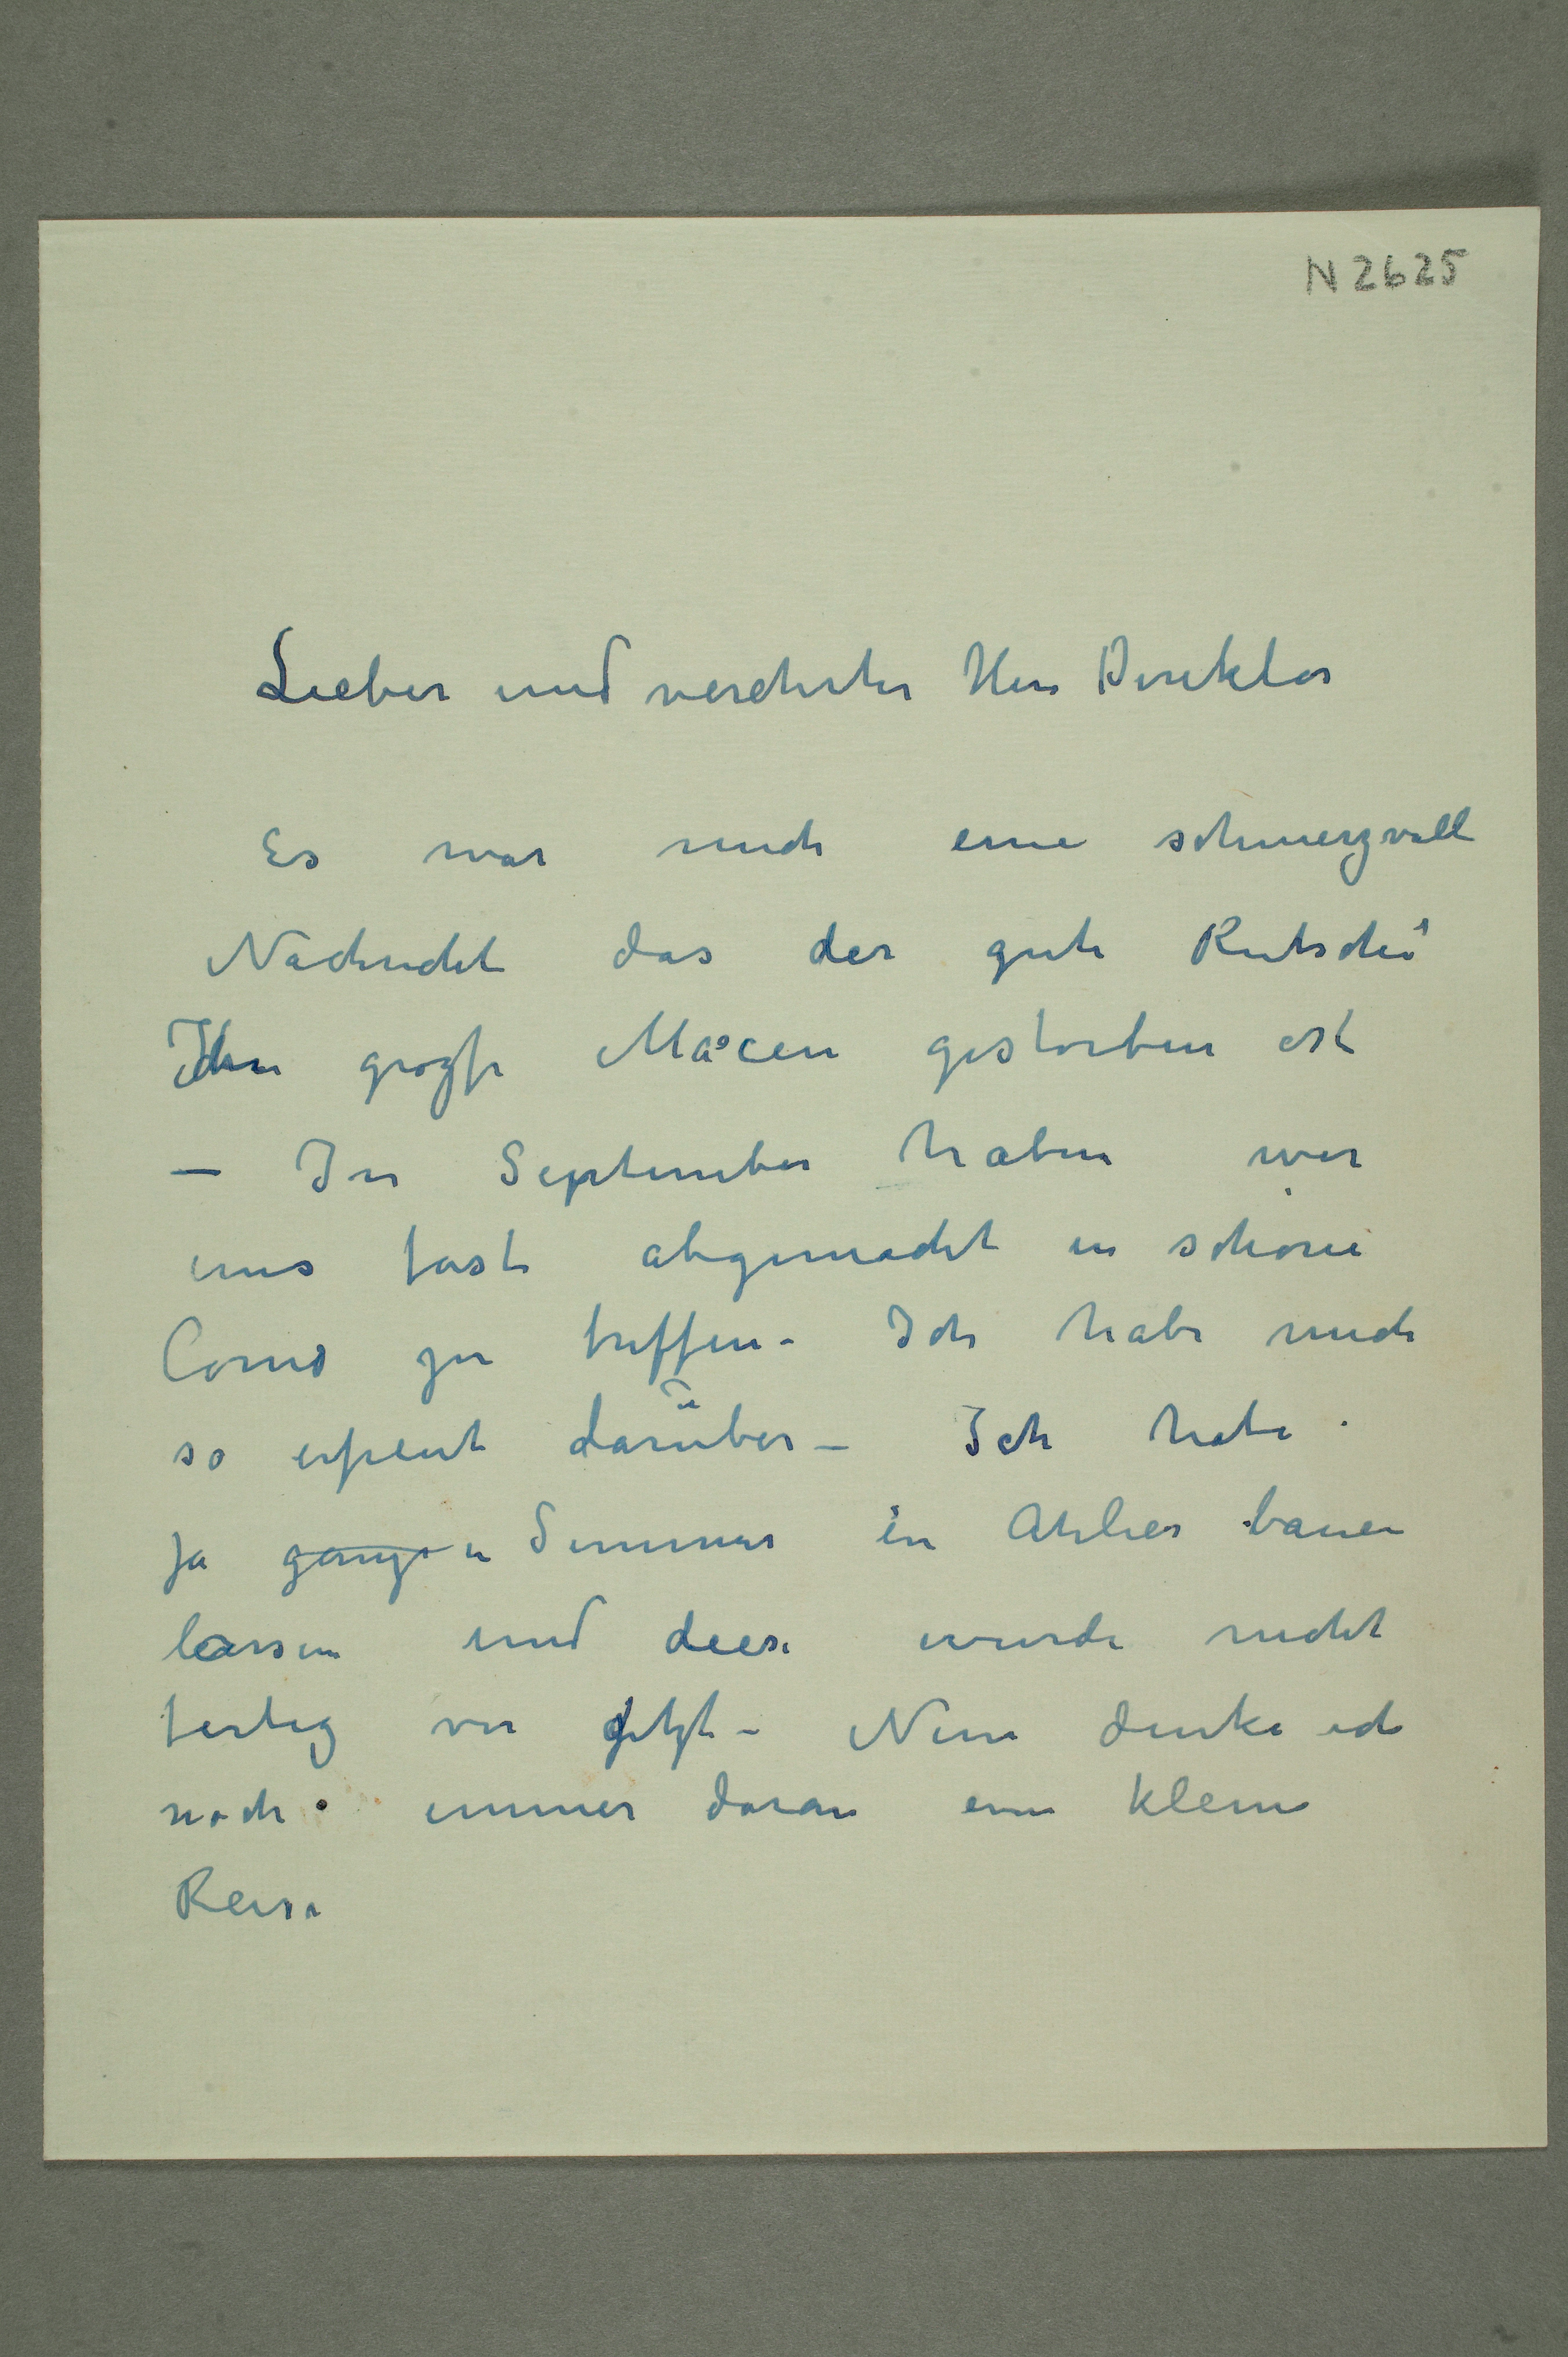 N 2625
Lieber und verehrter Herr Direktor
Es war mich eine schmerzvolle
Nachricht das der gute Rutsche
Ihre grozse Mäcen gestorben ist
— In September haben wir
uns fast abgemacht in schöne
Como zu treffen – Ich habe mich
so erfreut darüber – Ich habe
ja ganze Sommer in Atelier bauen
lassen und diese wurde nicht
fertig vor jetzt – Nun denke ich
noch immer daran eine kleine
Reise